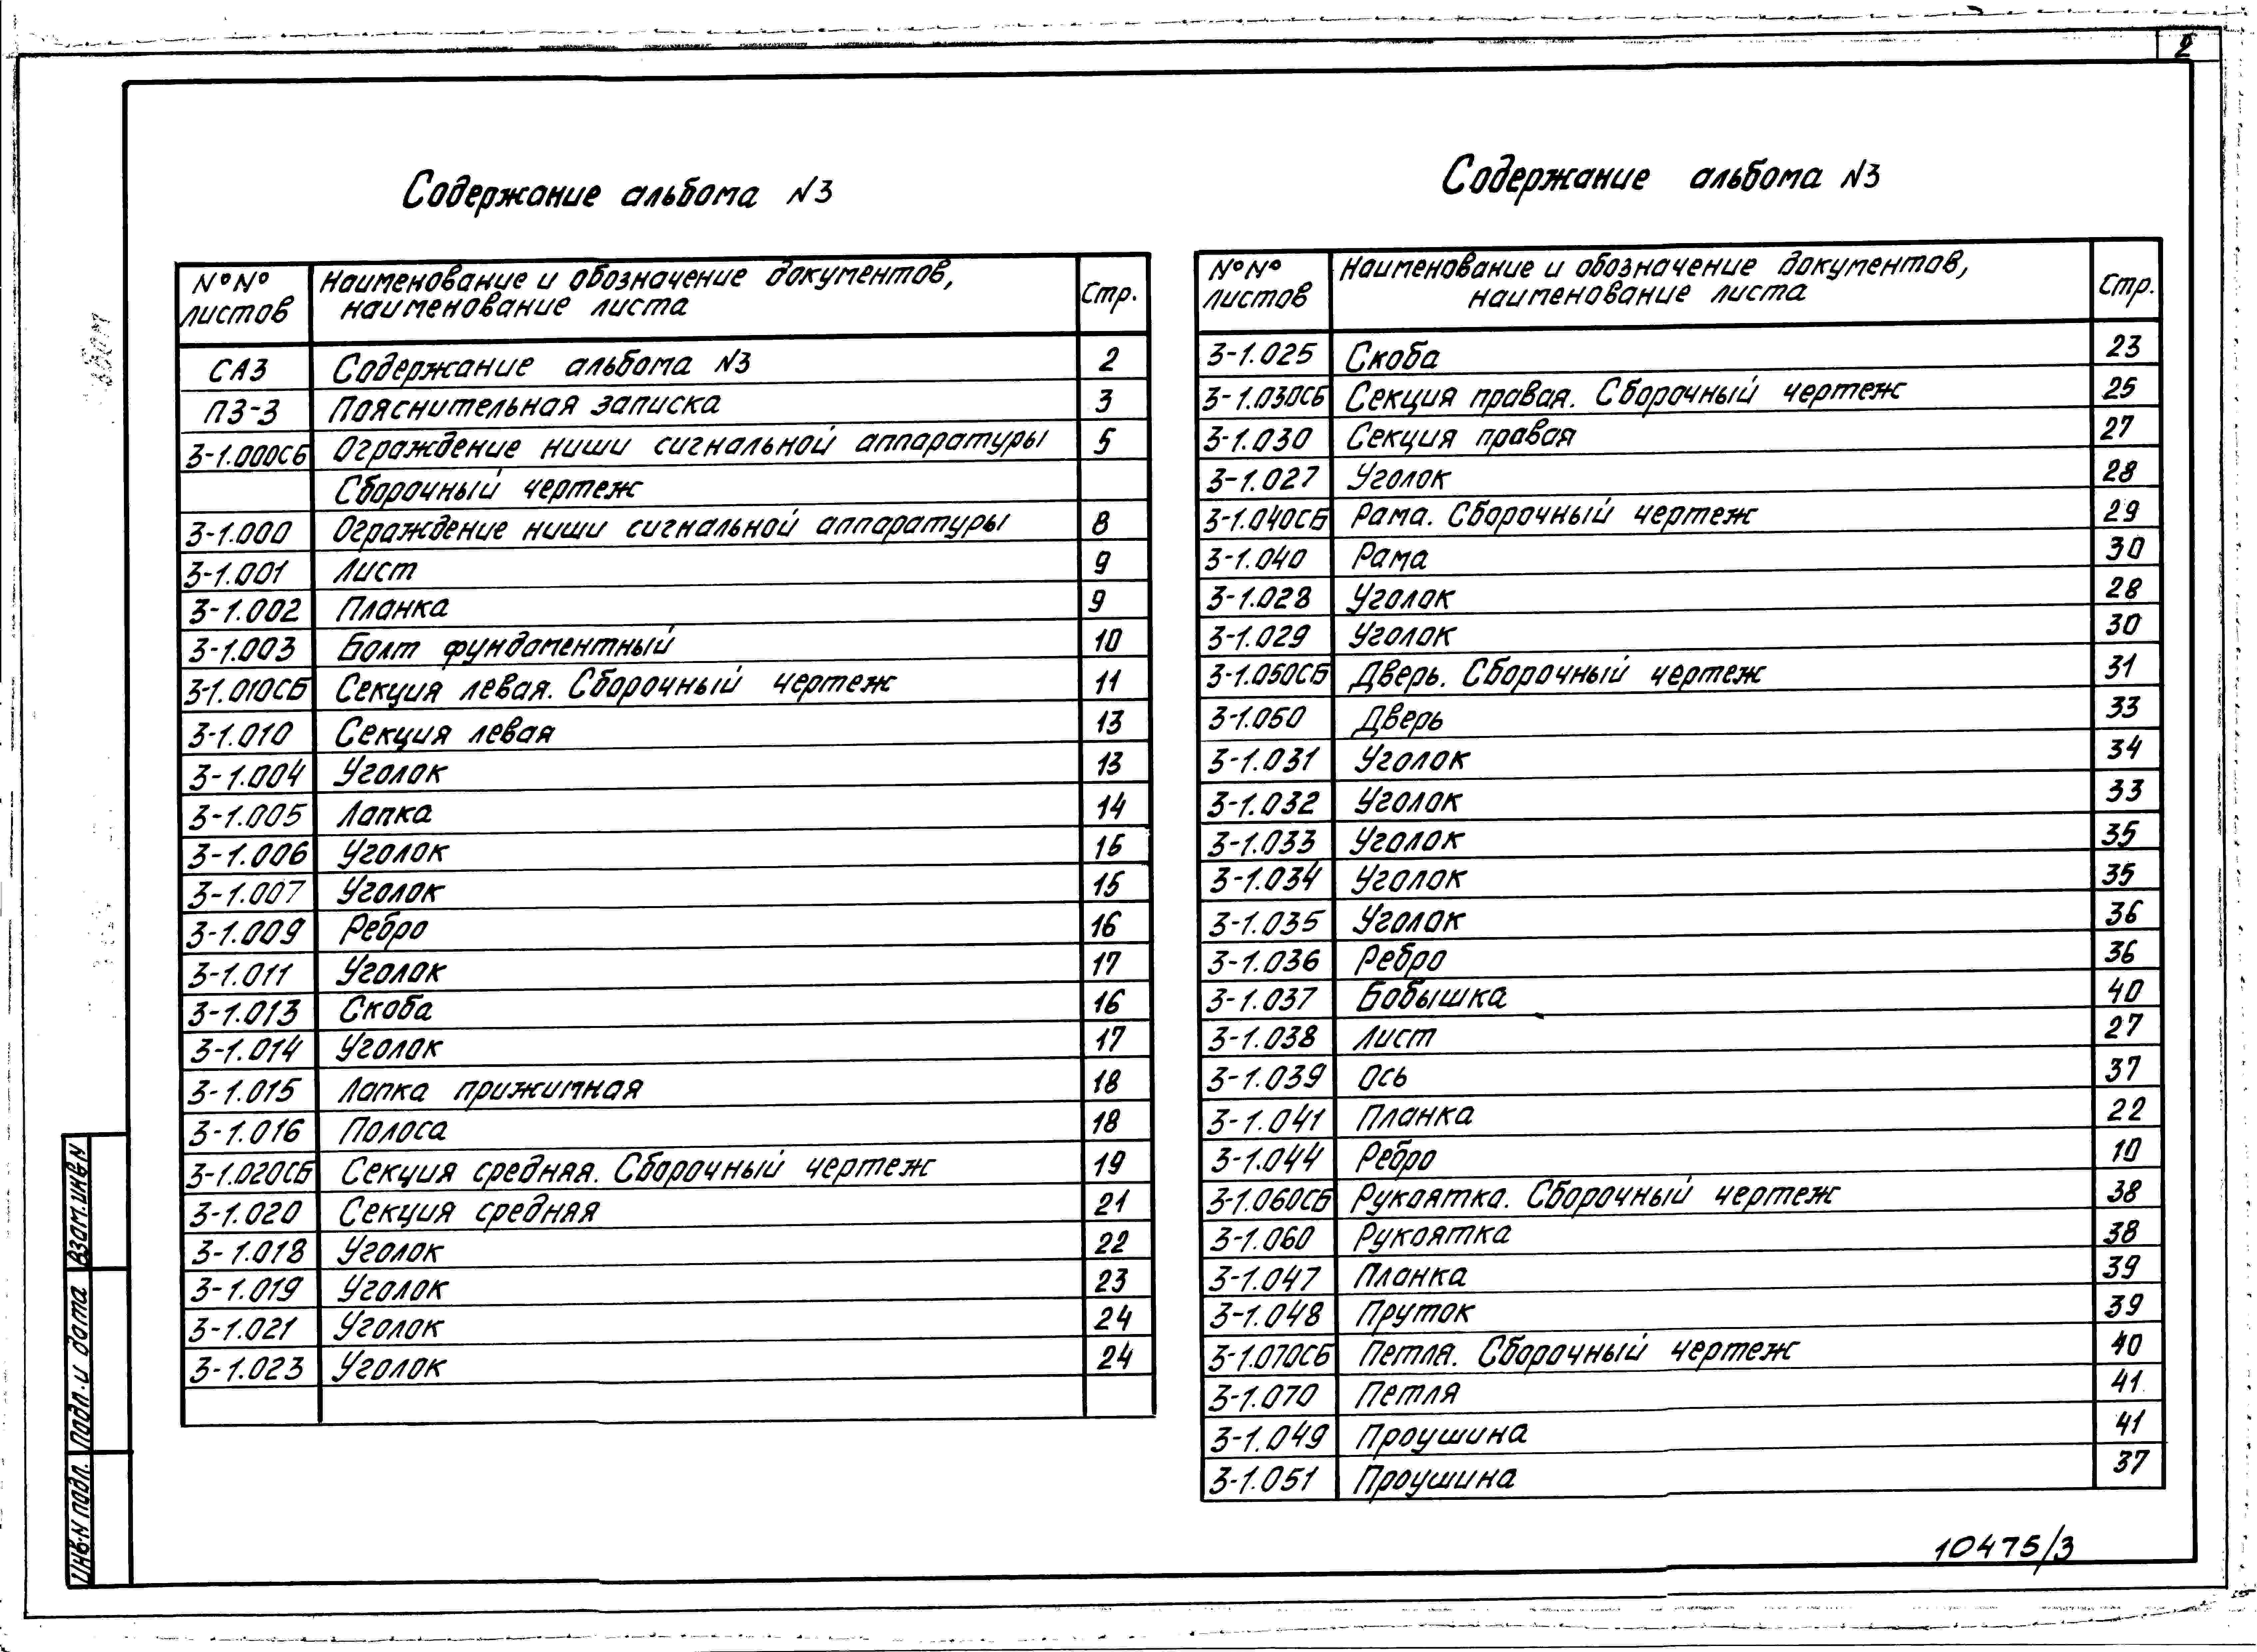 2
Содержание альбома N3
№№ листов Наименование и обозначение документов, наименование листа Стр.
СА3 Содержание альбома N3 2
ПЗ-3 Пояснительная записка 3
3-1.000СБ Ограждение ниши сигнальной аппаратуры 5
Сборочный чертеж
3-1.000 Ограждение ниши сигнальной аппаратуры 8
3-1.001 Лист 9
3-1.002 Планка 9
3-1.003 Болт фундаментный 10
3-1.010СБ Секция левая. Сборочный чертеж 11
3-1.010 Секция левая 13
3-1.004 Уголок 13
3-1.005 Лапка 14
3-1.006 Уголок 15
3-1.007 Уголок 15
3-1.009 Ребро 16
3-1.011 Уголок 17
3-1.013 Скоба 16
3-1.014 Уголок 17
3-1.015 Лапка прижимная 18
3-1.016 Полоса 18
3-1.020СБ Секция средняя. Сборочный чертеж 19
3-1.020 Секция средняя 21
3-1.018 Уголок 22
3-1.019 Уголок 23
3-1.021 Уголок 24
3-1.023 Уголок 24
Содержание альбома N3
№№ листов Наименование и обозначение документов, наименование листа Стр.
3-1.025 Скоба 23
3-1.030СБ Секция правая. Сборочный чертеж 25
3-1.030 Секция правая 27
3-1.027 Уголок 28
3-1.040СБ Рама. Сборочный чертеж 29
3-1.040 Рама 30
3-1.028 Уголок 28
3-1.029 Уголок 30
3-1.050СБ Дверь. Сборочный чертеж 31
3-1.050 Дверь 33
3-1.031 Уголок 34
3-1.032 Уголок 33
3-1.033 Уголок 35
3-1.034 Уголок 35
3-1.035 Уголок 36
3-1.036 Ребро 36
3-1.037 Бобышка 40
3-1.038 Лист 27
3-1.039 Ось 37
3-1.041 Планка 22
3-1.044 Ребро 10
3-1.060СБ Рукоятка. Сборочный чертеж 38
3-1.060 Рукоятка 38
3-1.047 Планка 39
3-1.048 Пруток 39
3-1.070СБ Петля. Сборочный чертеж 40
3-1.070 Петля 41
3-1.049 Проушина 41
3-1.051 Проушина 37
Взам.инв.N
Подп. и дата
Инв.N подл.
10475/3